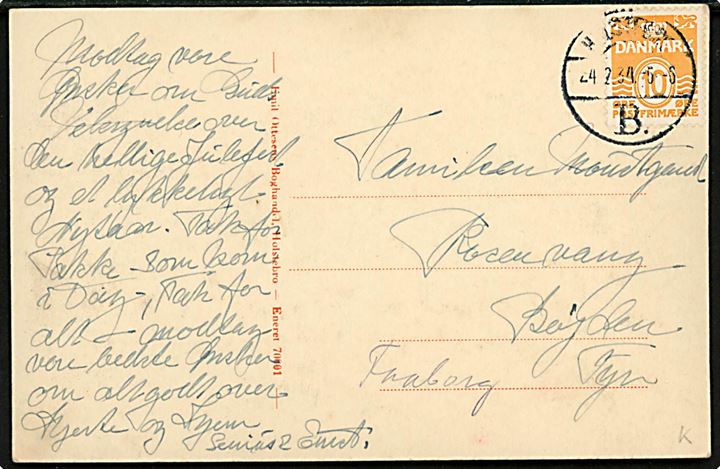 Modtag vore
Ønsker om Guds
Velsignelse over
den hellige Julefest
og et lykkeligt
Nytaar. Tak for
Pakke som kom
i Dag, Tak for
alt modtag
vore bedste Ønsker
om alt godt over
Hjerte og Hjem
Emil Ottesens Boghandel, Holstebro — Eneret 70401
DANMARK
10
ØRE ØRE
POSTFRIMÆRKE
24.2.34. 5-6
B.
Familien
Rosenvang
Bøjden
Faaborg Fyn
K